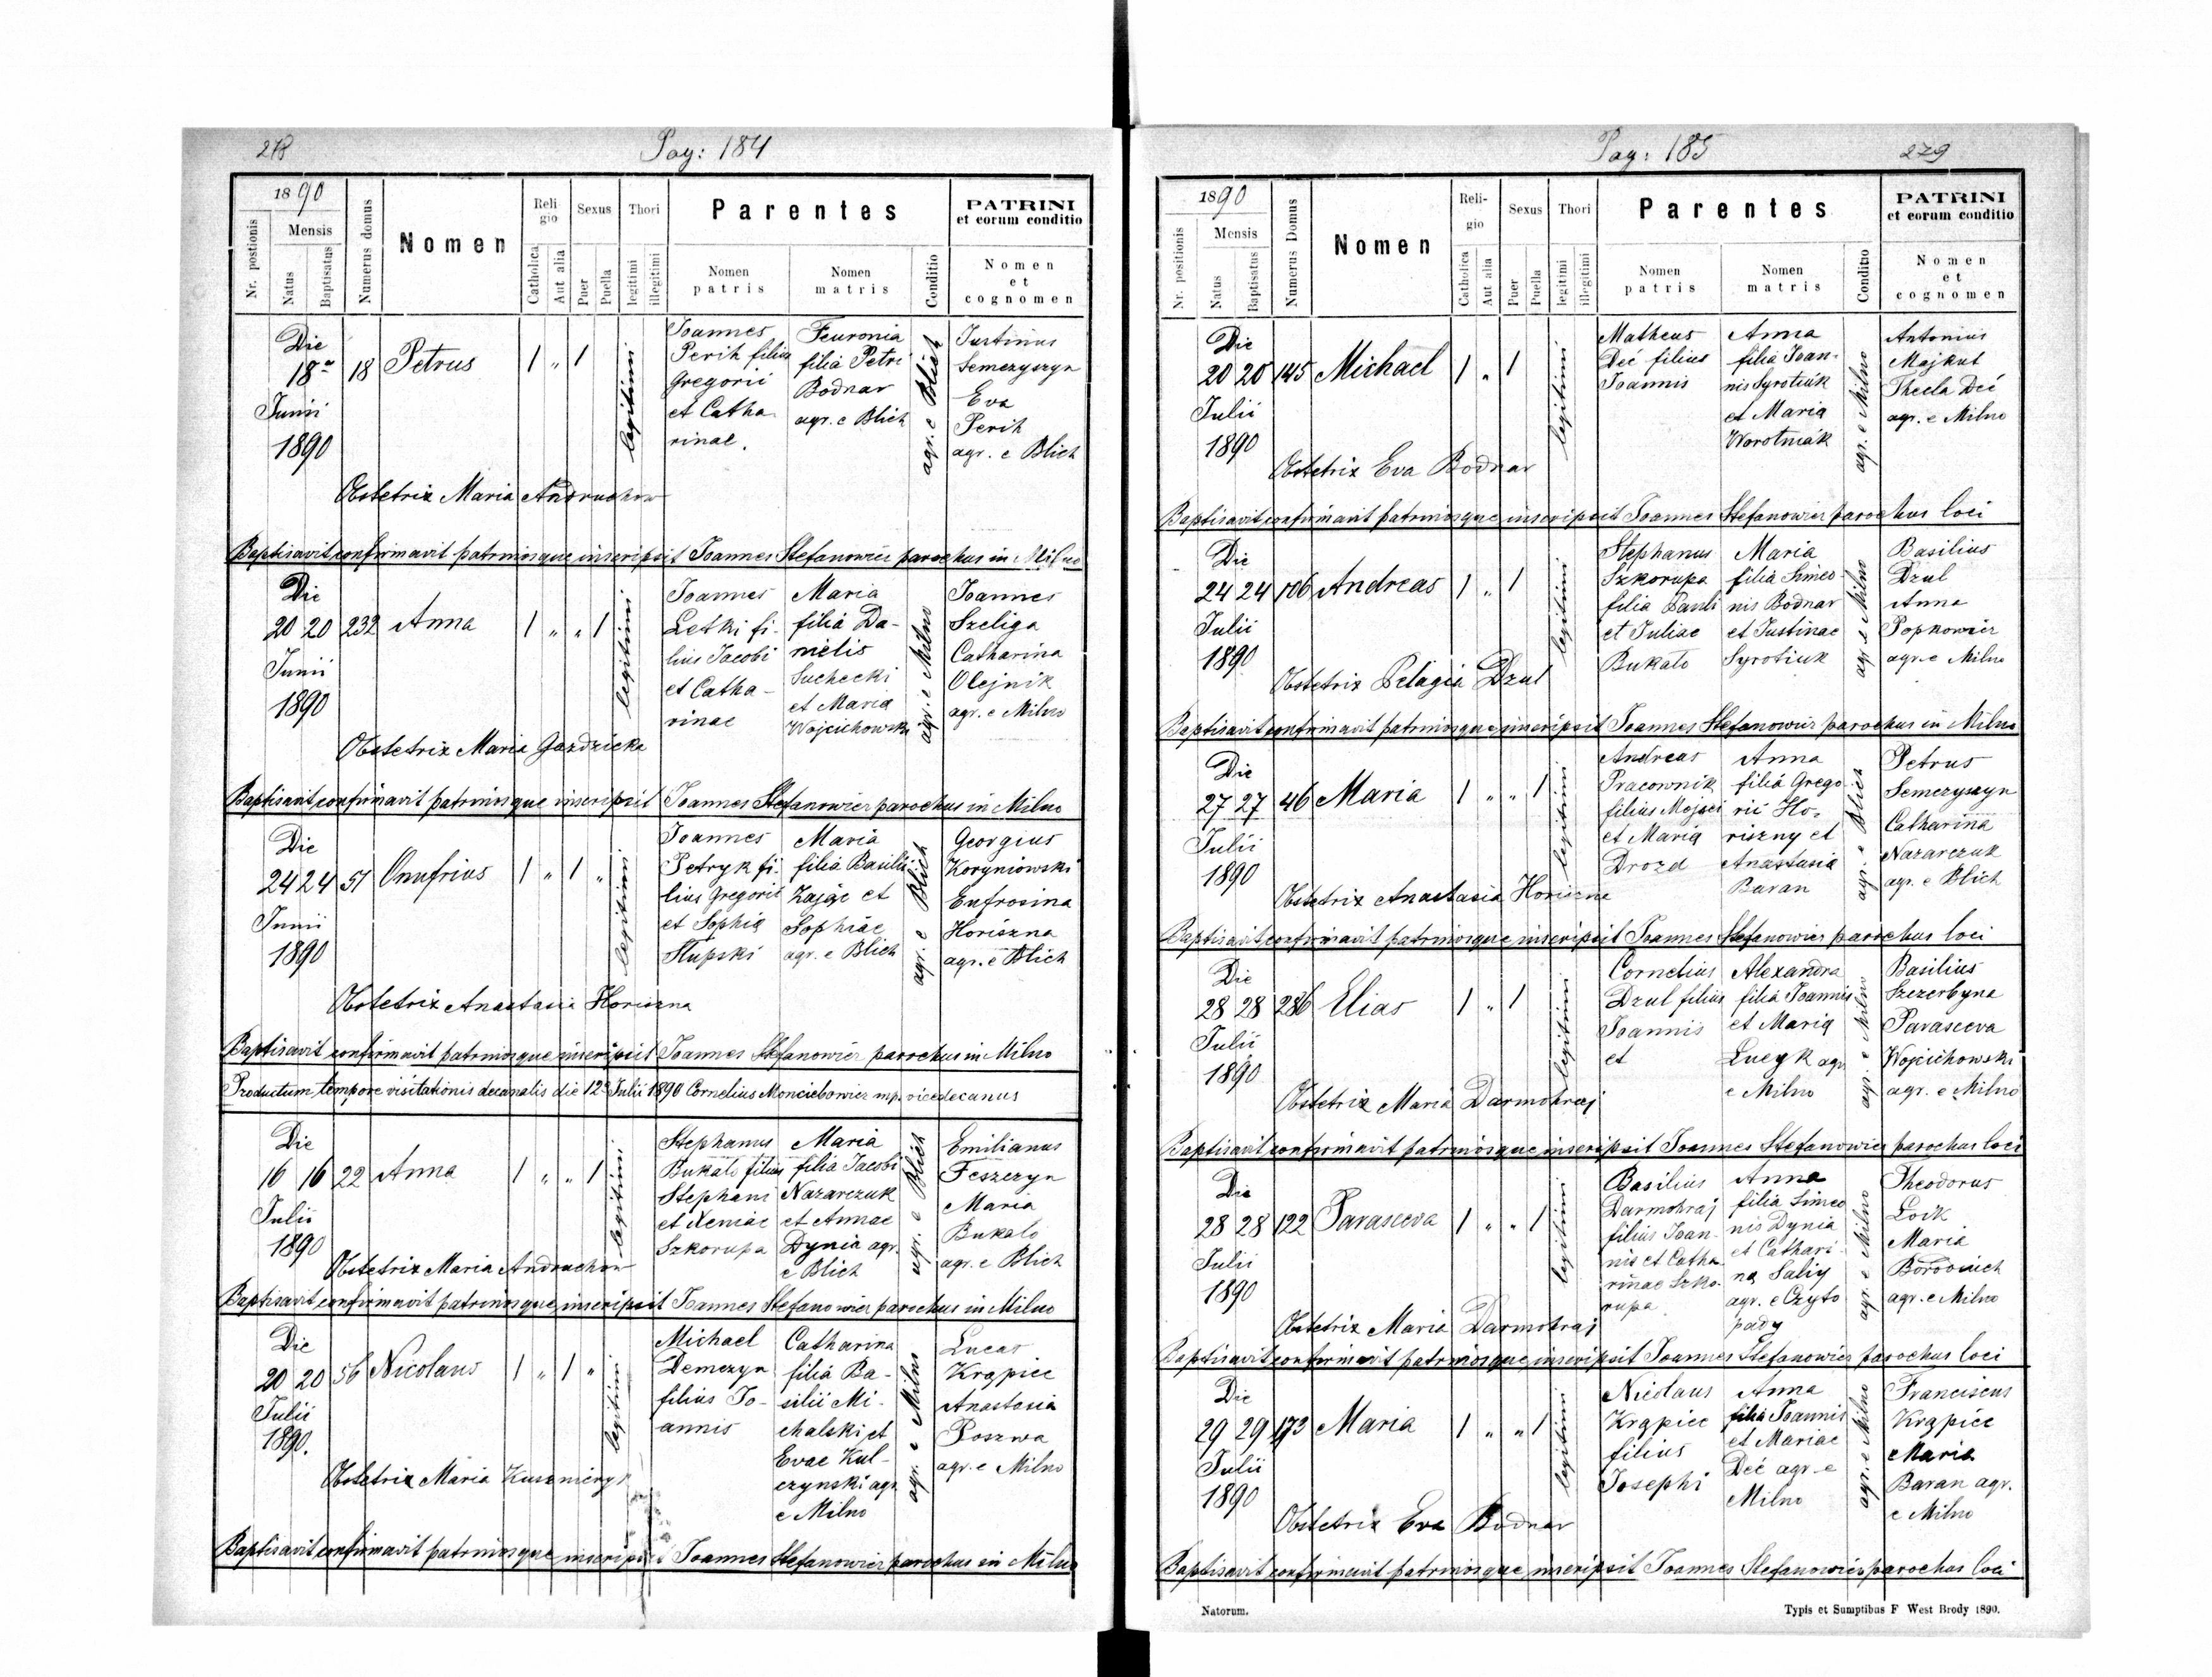 278
Pag: 184
1890
Nr. positionis
Mensis
Natus
Baptisatus
Numerus domus
Nomen
Religio
Catholica
Aut alia
Sexus
Puer
Puella
Thori
legitimi
illegitimi
Parentes
Nomen patris
Nomen matris
Conditio
PATRINI
et eorum conditio
Nomen
et
cognomen
Die
18a
Junii
1890
18
Petrus
1 " 1
legitimi
Joannes
Perih filius
Gregorii
et Catha
rinae.
Feuronia
filia Petri
Bodnar
agr. e Blich
agr. e Blich
Justinus
Semczyszyn
Eva
Perih
agr. e Blich
Obstetrix Maria Andruchow
Baptisavit confirmavit patrinosque inscripsit Joannes Stefanowicz parochus in Milno
Die
20 20
Junii
1890
232
Anna
1 " " 1
legitimi
Joannes
Letki fi-
lius Jacobi
et Catha-
rinae
Maria
filia Da-
nielis
Suchecki
et Maria
Wojcichowska
agr. e Milno
Joannes
Szeliga
Catharina
Olejnik
agr. e Milno
Obstetrix Maria Gazdzicka
Baptisavit confirmavit patrinosque inscripsit Joannes Stefanowicz parochus in Milno
Die
24 24
Junii
1890
51
Onufrius
1 " 1 "
legitimi
Joannes
Petryk fi-
lius Gregorii
et Sophia
Słupski
Maria
filia Basilii
Zając et
Sophiae
agr. e Blich
agr. e Blich
Georgius
Koryniowski
Eufrosina
Horiszna
agr. e Blich
Obstetrix Anastasia Horiszna
Baptisavit confirmavit patrinosque inscripsit Joannes Stefanowicz parochus in Milno
Productum tempore visitationis decanalis die 12 Julii 1890 Cornelius Monciebowicz mp. vicedecanus
Die
16 16
Julii
1890
22
Anna
1 " " 1
legitimi
Stephanus
Bukało filius
Stephani
et Xeniae
Szkorupa
Maria
filia Jacobi
Nazarczuk
et Annae
Dynia agr.
e Blich
agr. e Blich
Emilianus
Feszczyn
Maria
Bukało
agr. e Blich
Obstetrix Maria Andruchow
Baptisavit confirmavit patrinosque inscripsit Joannes Stefanowicz parochus in Milno
Die
20 20
Julii
1890.
56
Nicolaus
1 " 1 "
legitimi
Michael
Demczyn
filius Jo-
annis
Catharina
filia Ba-
silii Mi-
chalski et
Evae Kul-
czynski agr.
e Milno
agr. e Milno
Lucas
Krąpiec
Anastasia
Poszwa
agr. e Milno
Obstetrix Maria Kuszniryk
Baptisavit confirmavit patrinosque inscripsit Joannes Stefanowicz parochus in Milno
Pag: 185
279
1890
Nr. positionis
Mensis
Natus
Baptisatus
Numerus Domus
Nomen
Religio
Catholica
Aut alia
Sexus
Puer
Puella
Thori
legitimi
illegitimi
Parentes
Nomen patris
Nomen matris
Conditio
PATRINI
et eorum conditio
Nomen
et
cognomen
Die
20 20
Julii
1890
145
Michael
1 " 1
legitimi
Matheus
Deć filius
Joannis
Anna
filia Joan-
nis Syrotiuk
et Maria
Worotniak
agr. e Milno
Antonius
Majkut
Thecla Deć
agr. e Milno
Obstetrix Eva Bodnar
Baptisavit confirmavit patrinosque inscripsit Joannes Stefanowicz parochus loci
Die
24 24
Julii
1890
106
Andreas
1 " 1
legitimi
Stephanus
Szkorupa
filia Pauli
et Juliae
Bukało
Maria
filia Simeo-
nis Bodnar
et Justinae
Syrotiuk
agr. e Milno
Basilius
Dzul
Anna
Popkowicz
agr. e Milno
Obstetrix Pelagia Dzul
Baptisavit confirmavit patrinosque inscripsit Joannes Stefanowicz parochus in Milno
Die
27 27
Julii
1890
46
Maria
1 " " 1
legitimi
Andreas
Pracownik
filius Mojsei
et Maria
Drozd
Anna
filia Grego
rii Ho-
riszny et
Anastasia
Baran
agr. e Blich
Petrus
Semczyszyn
Catharina
Nazarczuk
agr. e Blich
Obstetrix Anastasia Horiszne
Baptisavit confirmavit patrinosque inscripsit Joannes Stefanowicz parochus loci
Die
28 28
Julii
1890
286
Elias
1 " 1
legitimi
Cornelius
Dzul filius
Joannis
et
Alexandra
filia Joannis
et Maria
Lucyk agr.
e Milno
agr. e Milno
Basilius
Szczerbyna
Parasceva
Wojcichowski
agr. e Milno
Obstetrix Maria Darmohraj
Baptisavit confirmavit patrinosque inscripsit Joannes Stefanowicz parochus loci
Die
28 28
Julii
1890
122
Parasceva
1 " " 1
legitimi
Basilius
Darmohraj
filius Joan-
nis et Catha
rinae Szko-
rupa
Anna
filia Simeo
nis Dynia
et Cathari-
na Saliy
agr. e Czyto
pady
agr. e Milno
Theodorus
Loik
Maria
Borowich
agr. e Milno
Obstetrix Maria Darmohraj
Baptisavit confirmavit patrinosque inscripsit Joannes Stefanowicz parochus loci
Die
29 29
Julii
1890
173
Maria
1 " " 1
legitimi
Nicolaus
Krąpiec
filius
Josephi
Anna
filia Joannis
et Mariae
Deć agr. e
Milno
agr. e Milno
Franciscus
Krąpiec
Maria
Baran agr.
e Milno
Obstetrix Eva Bodnar
Baptisavit confirmavit patrinosque inscripsit Joannes Stefanowicz parochus loci
Natorum.
Typis et Sumptibus F West Brody 1890.